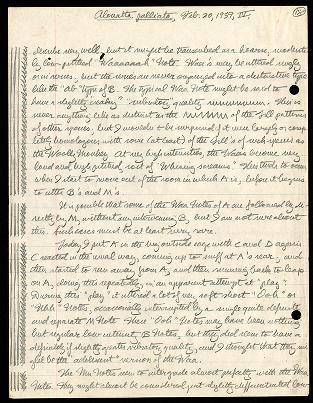 Alouatta palliata, Feb. 20, 1959, IV.
describe very well, but it might be transcribed as a hoarse, moderately
low-pitched "Waaaaaah" Note. Waas may be uttered singly
or in series, but the series are never organized into a distinctive type
like the "ab" type of B. The typical Waa Note might be said to
have a slightly "vibratory" quality. This is
never anything like as distinct as the of the patterns
of other species, but I wouldn't be surprised if it were largely or comp-
letely homologous with some (at least) of the of such species as
the Woolly Monkey. At very high intensities, the Waas become very
loud and high pitched, sort of "Whining screams". This tends to occur
when I start to move out of the room in which A is, before it begins
to utter B's and M's.
It is possible that some of the Waa Notes of A are followed by di-
rectly by M, without an intervening B, but I am not sure about
this. Such cases must be at least very rare.
Today I put A in the big outside cage with C and D again.
C reacted in the usual way, coming up to sniff at A's rear, and
then started to run away from A, and then running back to leap
on A, doing this repeatedly, in an apparent attempt at "play".
During this "play" it uttered a lot of very soft short "Ooh" or
"Uhh" Notes, occasionally interrupted by a single quite definite
and separate M Note. These "Ooh" Notes may have been nothing
but regular low intensity B Notes, but they did seem to have a
definitely if slightly vibratory quality, and I thought that they mi-
ght be the "adolescent" version of the Waa.
The M Notes seem to intergrade almost perfectly with the Waa
Notes. They might almost be considered just slightly differentiated low